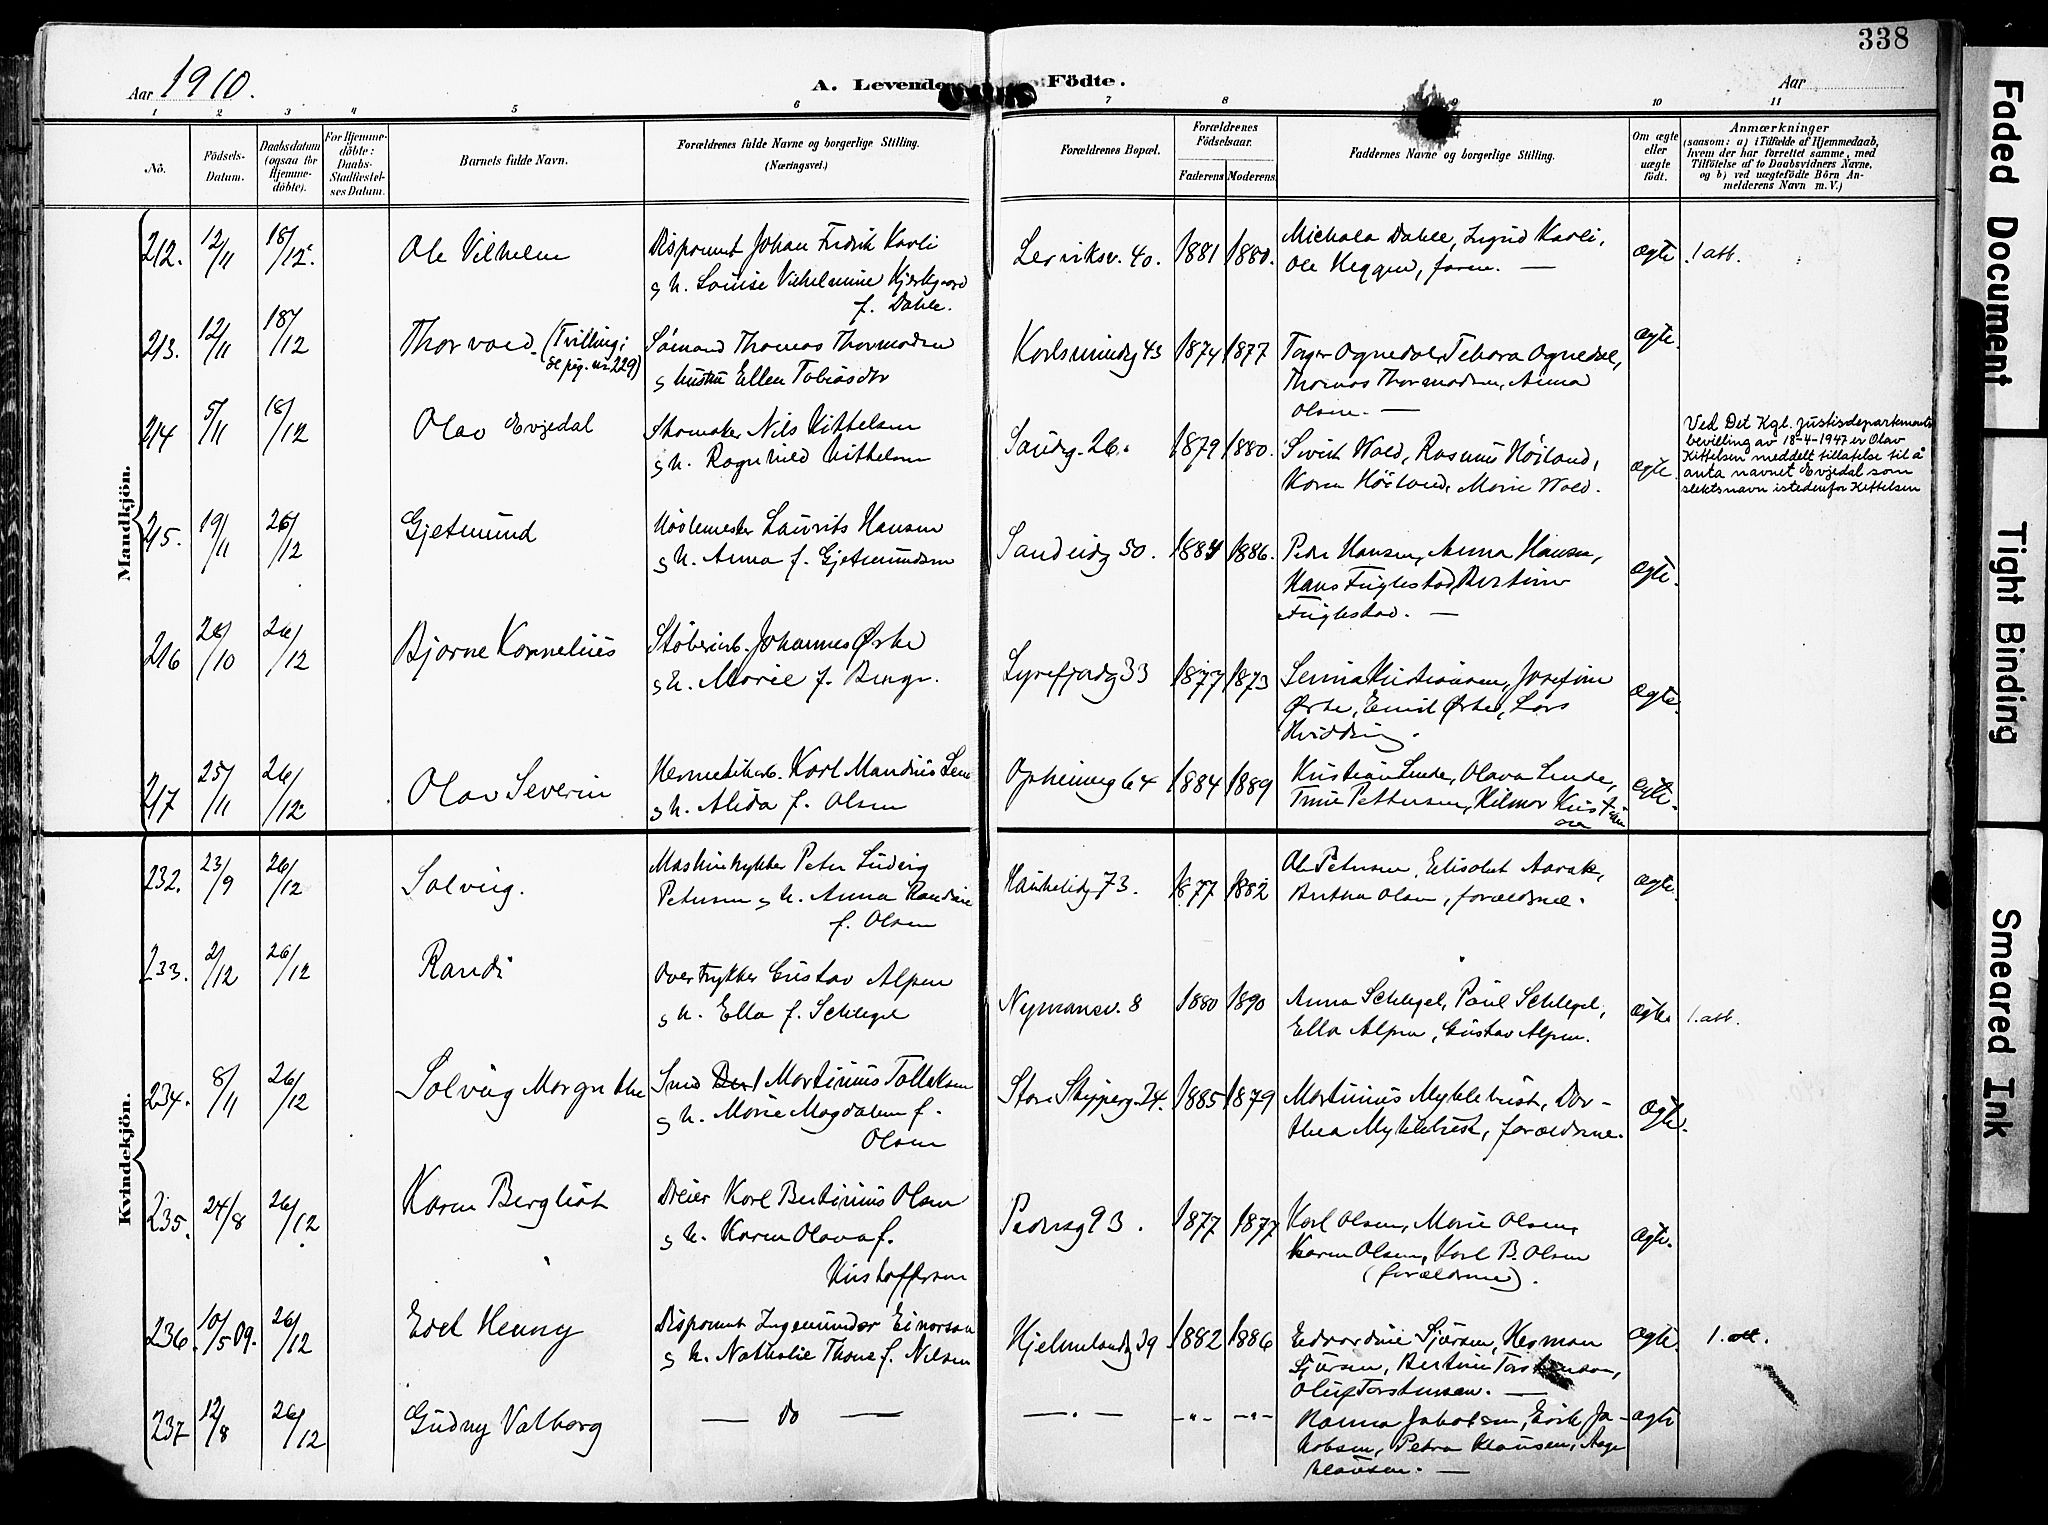 338
Aar 1910.
A. Levende Födte.
Aar
1 2 3 4 5 6 7 8 9 10 11
Nö.
Födsels-Datum.
Daabsdatum (ogsaa for Hjemme-döbte).
For Hjemme-döbte: Daabs-Stadfæstel-ses Datum.
Barnets fulde Navn.
Forældrenes fulde Navne og borgerlige Stilling.
(Næringsvei.)
Forældrenes Bopæl.
Forældrenes Födselsaar.
Faderens Moderens
Faddernes Navne og borgerlige Stilling.
Om ægte eller uægte födt.
Anmærkninger
(saasom: a) i Tilfælde af Hjemmedaab,
hvem der har forrettet samme, med
Tilföielse af to Daabsvidners Navne,
og b) ved uægtefödte Börn An-
melderens Navn m. V.)
Mandkjön.
212. 12/11 18/12. Ole Vilhelm
Disponent Johan Fredrik Kavli
g h. Louise Vilhelmine Kjerkgaard
f. Dahle.
Lerviksv. 40. 1881 1880.
Michala Dahle, Ingrid Kavli,
Ole Heggen, faren. —
ægte. 1 att.
213. 12/11 18/12 Thorvald (Tvilling;
se pig. nr. 229)
Sömand Thomas Thormodsen
g hustru Ellen Tobiasdtr
Karlsmindeg 43 1874 1877
Torger Ognedal, Tebora Ognedal,
Thomas Thormodsen, Anna
Olsen. —
ægte.
214 5/11 18/12 Olav Evjedal
Skomaker Nils Kittelsen
g h. Ragnhild Kittelsen
Saudeg. 26. 1879 1880.
Sivert Wold, Rasmus Höiland,
Karen Höiland, Marie Wold.
ægte.
Ved Det Kgl. Justisdepartments
bevilling av 18-4-1947 er Olav
Kittelsen meddelt tillatelse til å
anta navnet Evjedal som
slektsnavn istedenfor Kittelsen
215. 19/11 26/12 Gjetmund
Laurits Hansen
g h. Anna f. Gjetmundsen
Sandeidg 50. 1884 1886.
Peder Hansen, Anna Hansen,
Hans Fuglestad, Bertine
Fuglestad. —
ægte.
216 26/10 26/12 Bjarne Kornelius
Stöberiarb. Johannes Ørke
g h. Marie f. Berge.
Lysefjordg 33 1877 1873
Kristiansen, Josefine
Ørke, Emil Ørke, Lars
Hvidding.
ægte.
217 25/11 26/12 Olav Severin
Hermetikarb. Karl Mandius Lende
g h. Alida f. Olsen
Opheimsg 64 1884 1889
Kristian Lende, Olava Lende,
Trine Pettersen, Hilmar Kristian
sen
ægte.
Kvindekjön.
232. 23/9 26/12 Solveig.
Maskintrykker Peter Ludvig
Petersen g h. Anna Randine
f. Olsen
Haukelidg 73. 1877 1882
Ole Petersen, Elisabet Aarak,
Bertha Olsen, forældrene.
ægte.
233. 2/12 26/12 Randi
Overtrykker Gustav Alpen
g h. Ella f. Schlegel
Nymansv. 8 1880 1890
Anna Schlegel, Paul Schlegel,
Ella Alpen, Gustav Alpen.
ægte 1. att.
234. 8/11 26/12 Solveig Margrethe
Smed Martinius Tollaksen
g h. Marie Magdalene f.
Olsen
Store Skipperg. 24. 1885 1879
Martinius Myklebust, Dor-
thea Myklebust, forældrene.
ægte.
235. 24/8 26/12 Karen Bergliot
Dreier Karl Bertinius Olsen
g h. Karen Olava f.
Kristoffersen
Pedersg 93. 1877 1877
Karl Olsen, Marie Olsen,
Karen Olsen, Karl B. Olsen
(forældrene).
ægte.
236. 10/5 09. 26/12 Edel Henny
Disponent Ingemundar Einarson
g h. Nathalie Thone f. Nilsen
Hjelmelandsg 39 1882 1886
Edvardine Sjursen, Herman
Sjursen, Bertine Torstensen,
Oluf Torstensen. —
ægte. 1. att.
237 12/8 26/12 Gudny Valborg
— do — — " — -"- -"-
Hanna Jakobsen, Eirik Ja-
kobsen, Petra Klausen, Aage
Klausen. —
ægte
Faded Document
Tight Binding
Smeared Ink